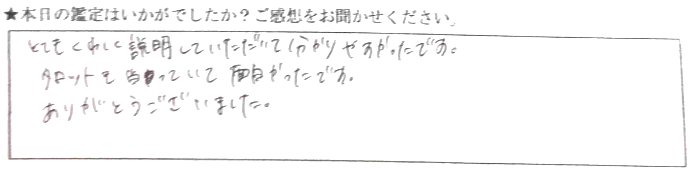 ★本日の鑑定はいかがでしたか？ご感想をお聞かせください。
とてもくわしく説明していただいて分かりやすかったです。
タロットも当たっていて面白かったです。
ありがとうございました。